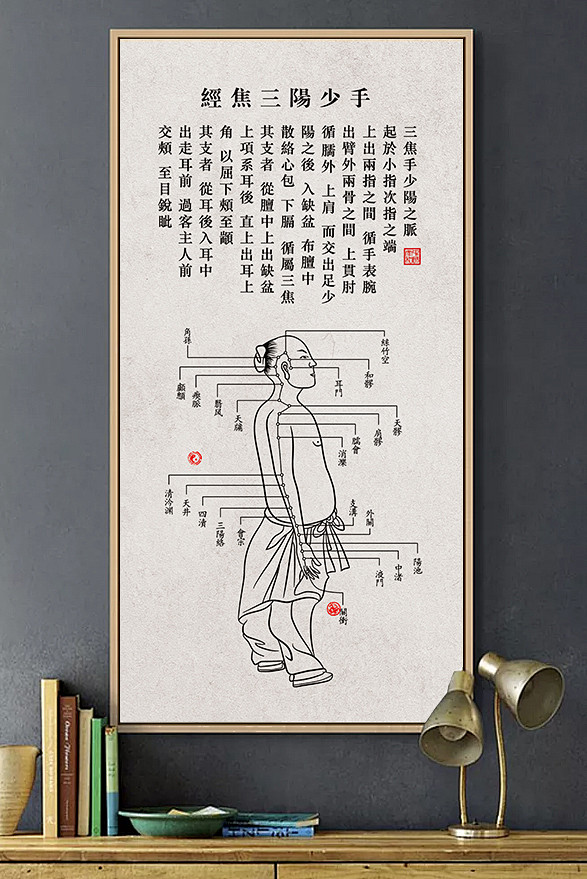 手少陽三焦經
三焦手少陽之脈
起於小指次指之端
上出兩指之間 循手表腕
出臂外兩骨之間 上貫肘
循臑外 上肩 而交出足少
陽之後 入缺盆 布膻中
散絡心包 下膈 循屬三焦
其支者 從膻中上出缺盆
上項系耳後 直上出耳上
角 以屈下頰至
其支者 從耳後入耳中
出走耳前 過客主人前
交頰 至目銳眦
絲竹空
角孫
和髎
耳門
瘈脈
翳風
天牖
天髎
肩髎
臑會
消濼
清冷淵
天井
四瀆
三陽絡
會宗
支溝
外關
陽池
中渚
液門
關衝